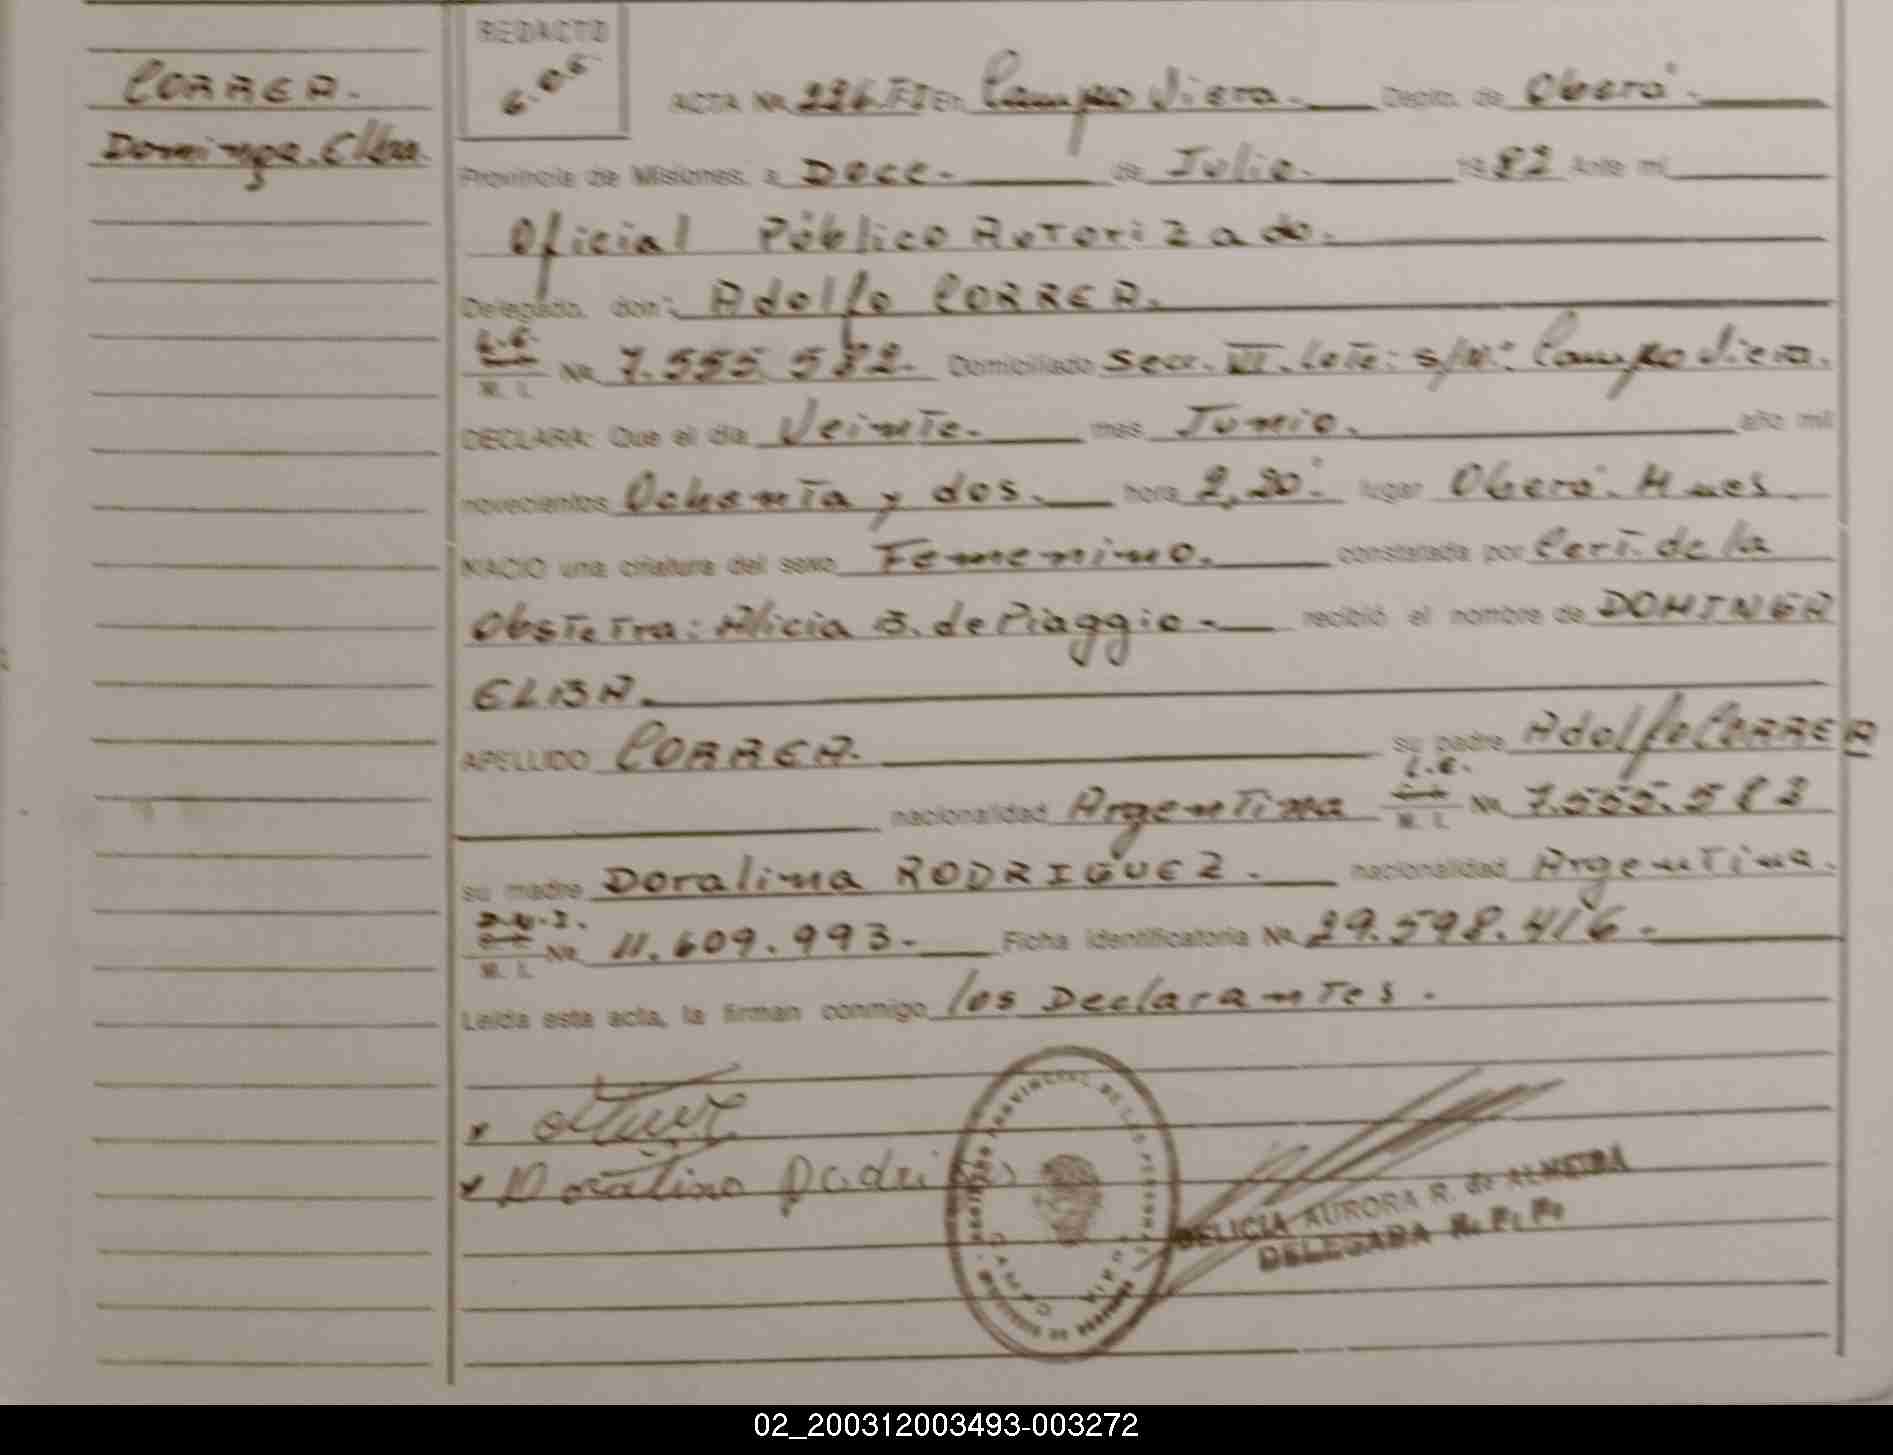 CORREA.
Dominga. Elba
REDACTO
ACTA Nº 226. TI En Campo Viera. Depto. de Oberá.
Provincia de Misiones, a Doce. de Julio. 1982 Ante mí
Oficial Público Autorizado.
Delegado, don: Adolfo CORREA.
L.E.
M. I. Nº 7.555.582. Domiciliado Secc. VI. Lote: s/Nº: Campo Viera.
DECLARA: Que el día Veinte. mes Junio. año mil
novecientos Ochenta y dos. hora 2,20. lugar Oberá. Mnes.
NACIO una criatura del sexo Femenino. constatada por Cert. de la
Obstetra: Alicia B. de Piaggio - recibió el nombre de DOMINGA
ELBA.
APELLIDO CORREA. su padre Adolfo CORREA
nacionalidad Argentina L.E. M. I. Nº 7.555.582
su madre Doralina RODRIGUEZ. nacionalidad Argentina.
D.N.I.
M. I. Nº 11.609.993. Ficha Identificatoria Nº 29.598.416.
Leída esta acta, la firman conmigo los Declarantes.
Doralina
DELICIA AURORA R. de ALMEIDA
DELEGADA R. P. P.
02_200312003493-003272